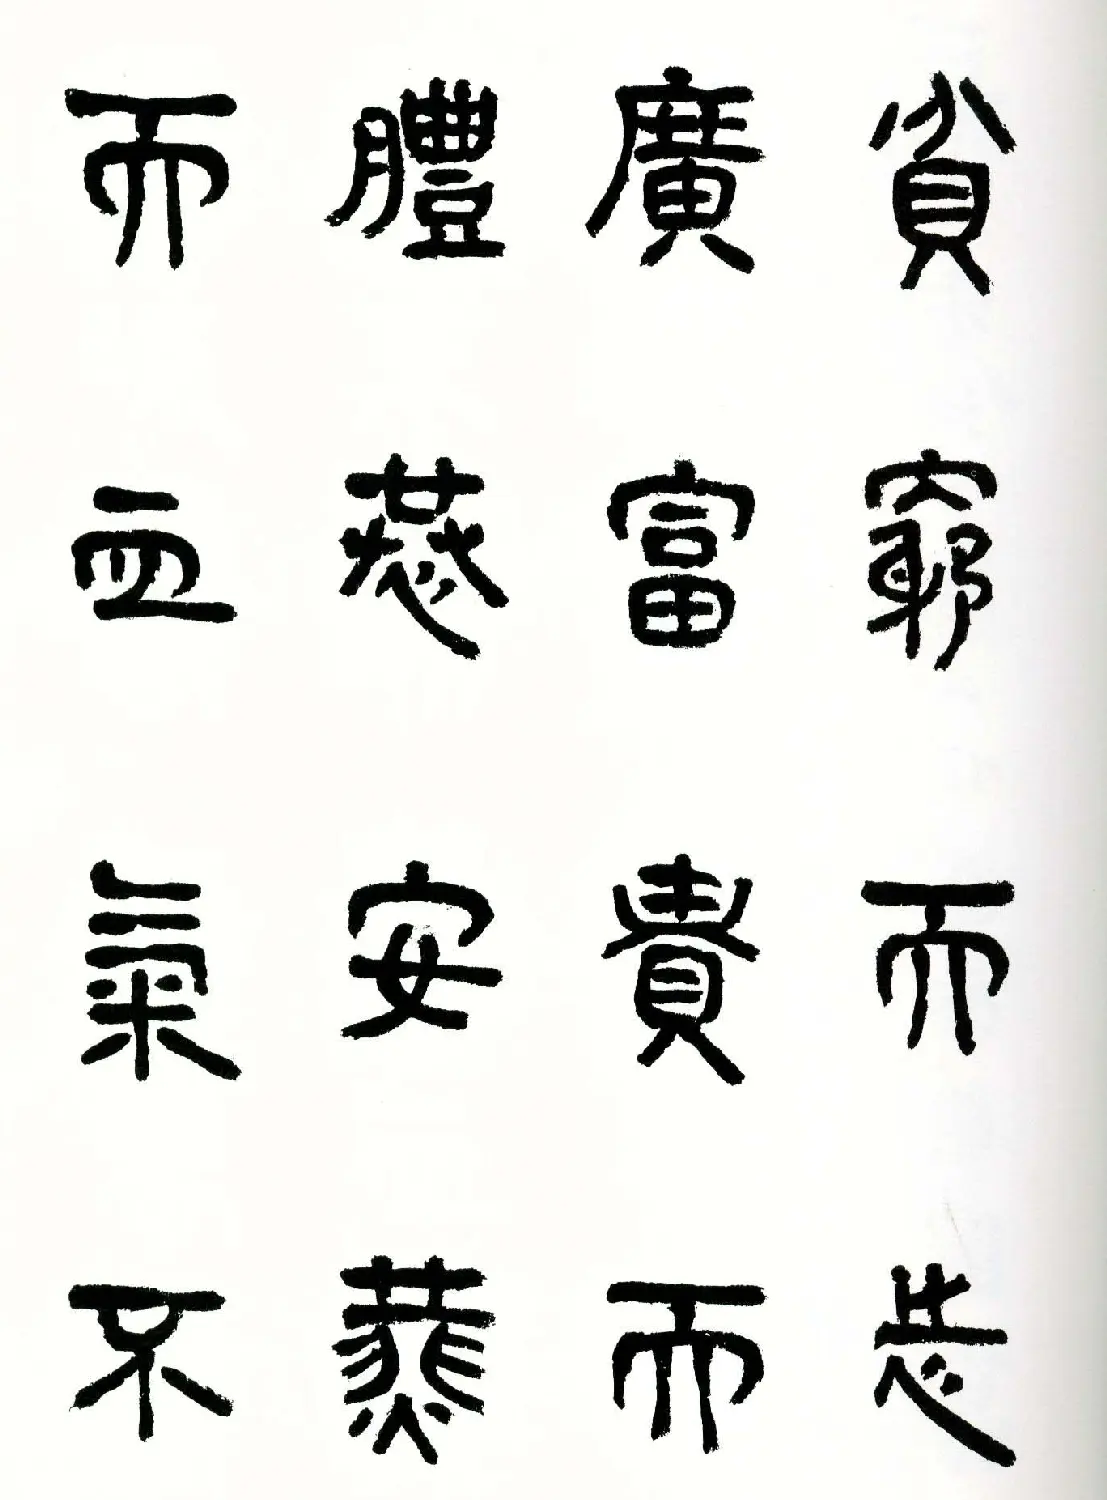 貧窮而志
廣富貴而
體恭安燕
而血氣不